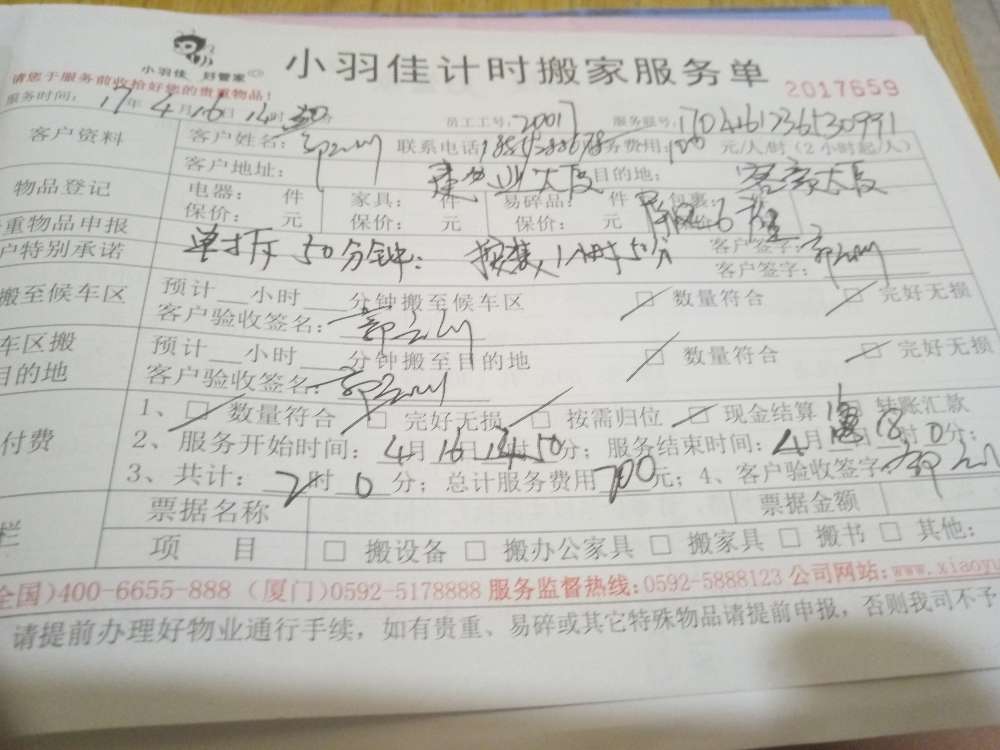 小羽佳 好管家
小羽佳计时搬家服务单
2017659
请您于服务前收拾好您的贵重物品!
服务时间: 17年4月16日14时30分
员工工号: 2001 服务账号:
客户资料
客户姓名: 联系电话: 服务费用: 100元/人/时(2小时起/人)
客户地址: 建业大厦 目的地: 客帝大厦
物品登记
电器: 件 家具: 件 易碎品: 件 包裹:
保价: 元 保价: 元 保价: 元 保价:
重物品申报 客户签字:
户特别承诺 单打斥50分钟: 按装1小时50分 客户签字:
搬至候车区
预计__小时___分钟搬至候车区 □ 数量符合 □ 完好无损
客户验收签名:
车区搬
目的地
预计__小时___分钟搬至目的地 □ 数量符合 □ 完好无损
客户验收签名:
付费
1、□ 数量符合 □ 完好无损 □ 按需归位 □ 现金结算 □ 转账汇款
2、服务开始时间: 4月16日 时50分; 服务结束时间: 4月 日 时0分;
3、共计: 2时0分; 总计服务费用 700元; 4、客户验收签字
栏
票据名称 票据金额
项 目 □ 搬设备 □ 搬办公家具 □ 搬家具 □ 搬书 □ 其他:
全国)400-6655-888 (厦门)0592-5178888 服务监督热线:0592-5888123 公司网站:www.xiaoyu
请提前办理好物业通行手续,如有贵重、易碎或其它特殊物品请提前申报,否则我司不予